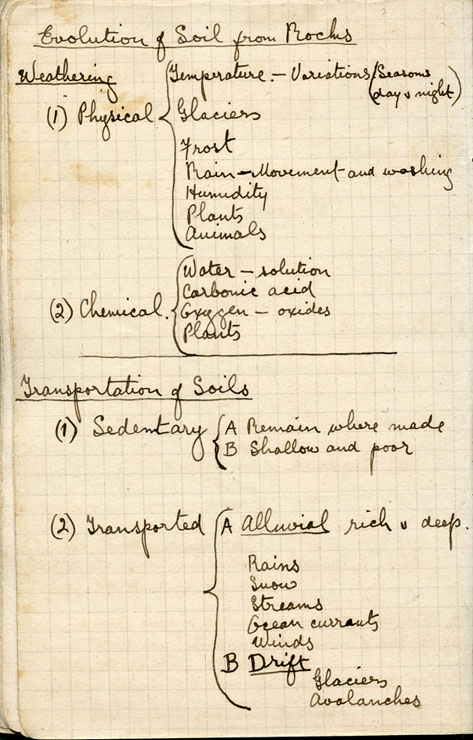 Evolution of Soil from Rocks
Weathering
Temperature - Variations (Seasons
day & night)
(1) Physical
Glaciers
Frost
Rain - Movement and washing
Humidity
Plants
Animals
Water - solution
Carbonic acid
(2) Chemical.
Oxygen - oxides
Plants
Transportation of Soils
(1) Sedentary
A Remain where made
B Shallow and poor
(2) Transported
A Alluvial rich & deep.
Rains
Snow
Streams
Ocean currants
Winds
B Drift
Glaciers
Avalanches